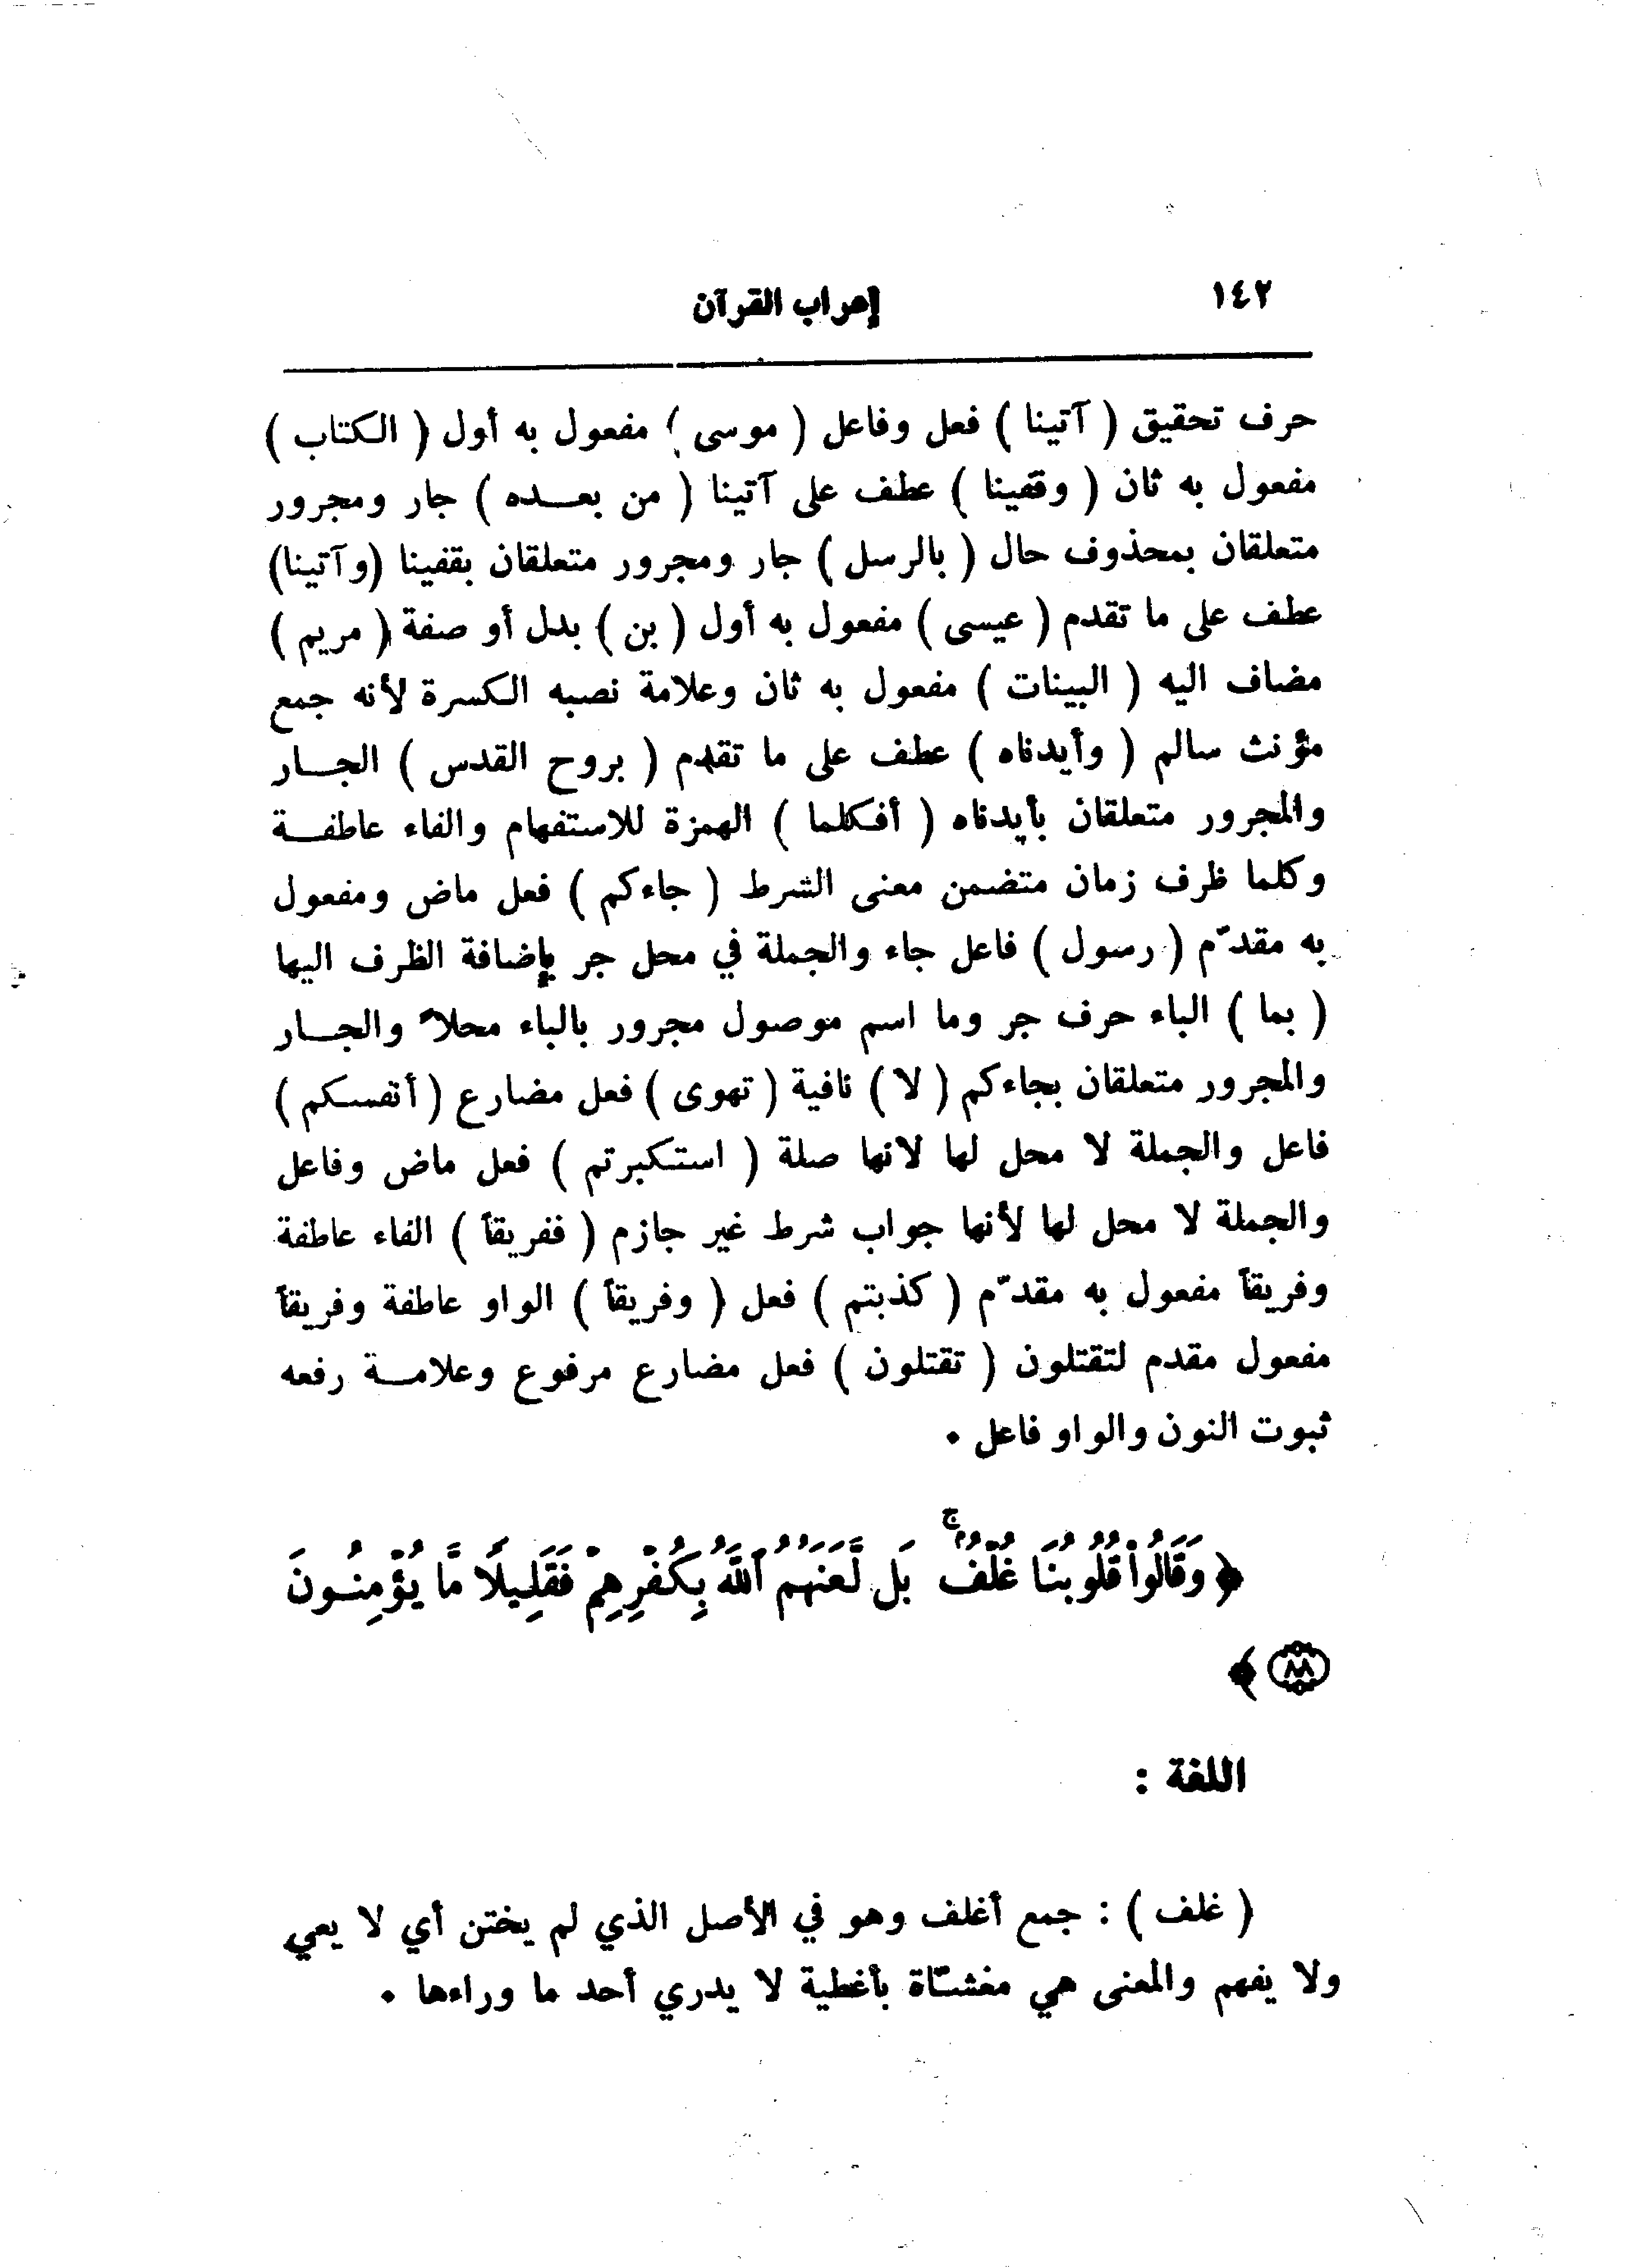 ١٤٢
إعراب القرآن
حرف تحقيق ( آتينا ) فعل وفاعل ( موسى ) مفعول به أول ( الكتاب )
مفعول به ثان ( وقفينا ) عطف على آتينا ( من بعـــده ) جار ومجرور
متعلقان بمحذوف حال ( بالرسل ) جار ومجرور متعلقان بقفينا (وآتينا)
عطف على ما تقدم ( عيسى ) مفعول به أول ( بن ) بدل أو صفة ( مريم )
مضاف اليه ( البينات ) مفعول به ثان وعلامة نصبه الكسرة لأنه جمع
مؤنث سالم ( وأيدناه ) عطف على ما تقدم ( بروح القدس ) الجـــار
والمجرور متعلقان بأيدناه ( أفكلما ) الهمزة للاستفهام والفاء عاطفـــة
وكلما ظرف زمان متضمن معنى الشرط ( جاءكم ) فعل ماض ومفعول
به مقدّم ( رسول ) فاعل جاء والجملة في محل جر بإضافة الظرف اليها
( بما ) الباء حرف جر وما اسم موصول مجرور بالباء محلاً والجـــار
والمجرور متعلقان بجاءكم ( لا ) نافية ( تهوى ) فعل مضارع ( أنفسكم )
فاعل والجملة لا محل لها لانها صلة ( استكبرتم ) فعل ماض وفاعل
والجملة لا محل لها لأنها جواب شرط غير جازم ( ففريقاً ) الفاء عاطفة
وفريقاً مفعول به مقدّم ( كذبتم ) فعل ( وفريقاً ) الواو عاطفة وفريقاً
مفعول مقدم لتقتلون ( تقتلون ) فعل مضارع مرفوع وعلامـــة رفعه
ثبوت النون والواو فاعل ٠
﴿ وَقَالُواْ قُلُوبُنَا غُلْفُۢ ۚ بَل لَّعَنَهُمُ ٱللَّهُ بِكُفْرِهِمْ فَقَلِيلًا مَّا يُؤْمِنُونَ
٨٨ ﴾
اللغة :
( غلف ) : جمع أغلف وهو في الأصل الذي لم يختن أي لا يعي
ولا يفهم والمعنى هي مغشّاة بأغطية لا يدري أحد ما وراءها ٠